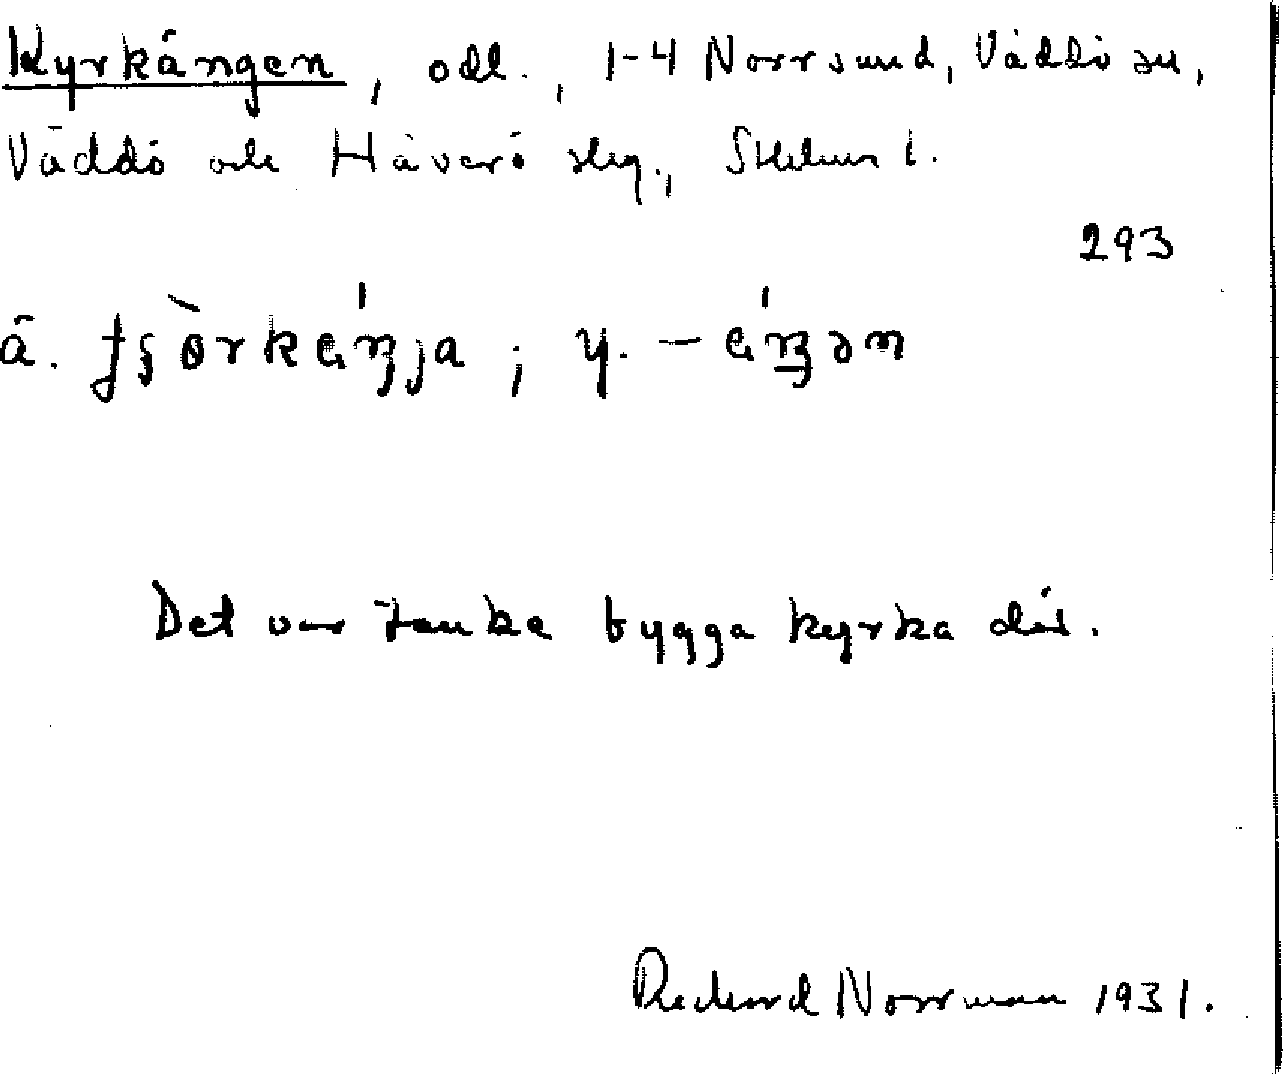 Kyrkängen, odl., 1-4 Norrsund, Väddö sn,
Väddö och Häverö slg., Sthlms l.
293
ä. tʃòrkéŋja; y. -éŋən
Det var tanke bygga kyrka där.
Richard Norrman 1931.